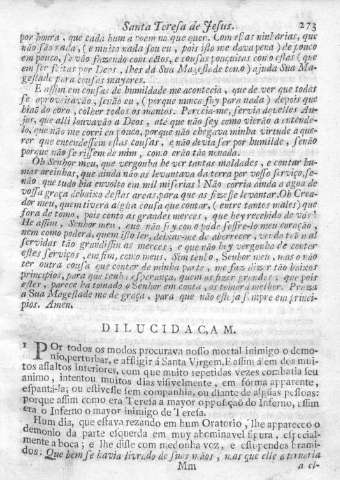 Santa Teresa de Jesus. 273
por honra, que cada hum a poem no que quer. Com estas ninharias, que
não são nada, (e muito nada sou eu, pois isto me dava pena) de pouco
em pouco, se vão fazendo com estos, e cousas pouquitas como estas (que
em ser feitas por Deos, lhes dá Sua Magestade tomo) ajuda Sua Ma-
gestade para cousas mayores.
E assim em cousas de humildade me acontecia, que de ver que todas
se aproveitavão, senão eu, (porque nunca fuy para nada) depois que
hião do coro, colher todos os mantos. Parecia-me, servia áquelles An-
jos, que alli louvavão a Deos, até que não sey como vierão a entende-
lo, que não me corri eu pouco, porque não chegava minha virtude a que-
rer que entendessem estas cousas, e não devia ser por humilde, senão
porque não se rissem de mim, como erão tão nonada.
Oh Senhor meu, que vergonha he ver tantas maldades, e contar hu-
mas areinhas, que ainda não as levantava da terra por vosso serviço, se-
não que tudo hia envolto em mil miserias! Não corria ainda a agua de
vossa graça debaixo destas areas, para que as fizesse levantar. Oh Crea-
dor meu, quem tivera alguma cousa que contar, (entre tantos males) que
fora de tomo, pois conto as grandes merces, que hey recebido de vós!
He assim, Senhor meu, que não sey como póde soffre-lo meu coração,
nem como poderá, quem isto ler, deixar-me de aborrecer, vendo tão mal
servidas tão grandissimas merces; e que não hey vergonha de contar
estes serviços, em fim, como meus. Sim tenho, Senhor meu, mas o não
ter outra cousa que contar de minha parte, me faz dizer tão baixos
principios, para que tenha esperança, quem os fizer grandes; que pois
estes, parece ha tomado o Senhor em conta, os tomará melhor. Praza
a Sua Magestade me dê graça, para que não esteja sempre em princi-
pios. Amen.
DILUCIDAÇAM.
1 POr todos os modos procurava nosso mortal inimigo o demo-
nio, perturbar, e affligir á Santa Virgem. E assim além dos mui-
tos assaltos interiores, com que muito repetidas vezes combatia seu
animo, intentou muitas dias visivelmente, em fórma apparente,
espantá-la; ou estivesse sem companhia, ou diante de algũas pessoas:
porque assim como era Teresa a mayor opposiçaõ do Inferno, assim
era o Inferno o mayor inimigo de Teresa.
Hum dia, que estava rezando em hum Oratorio, lhe appareceo o
demonio da parte esquerda em muy abominavel figura, especial-
mente a boca; e lhe disse com medonha vez, e estupendos brami-
dos: Que bem se havia livrado de suas mãos, mas que elle a tornaria
Mm a el-